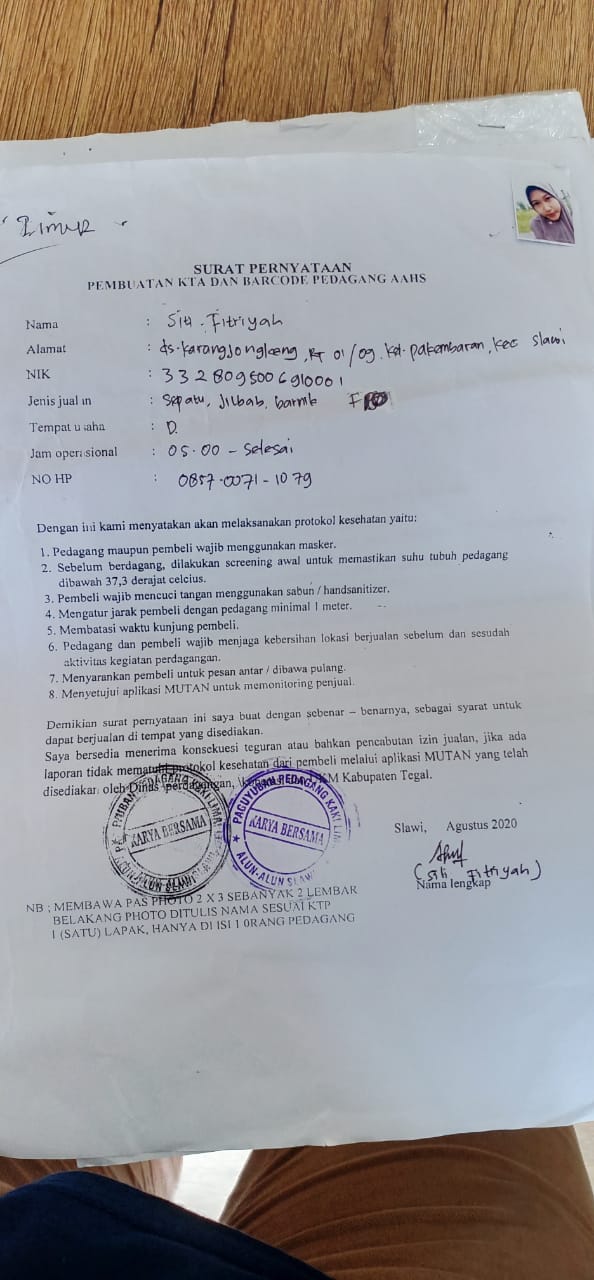 Timur
SURAT PERNYATAAN
PEMBUATAN KTA DAN BARCODE PEDAGANG AAHS
Nama : Siti Fitriyah
Alamat : ds. Karangjongkeng, RT 01/09. Kel. pakembaran, kec Slawi
NIK : 3328095006910001
Jenis jual n : Sepatu, Jilbab,
Tempat u aha : D.
Jam oper sional : 05.00 - Selesai
NO HP : 0857-0071-1079
Dengan ini kami menyatakan akan melaksanakan protokol kesehatan yaitu:
1. Pedagang maupun pembeli wajib menggunakan masker.
2. Sebelum berdagang, dilakukan screening awal untuk memastikan suhu tubuh pedagang
dibawah 37,3 derajat celcius.
3. Pembeli wajib mencuci tangan menggunakan sabun / handsanitizer.
4. Mengatur jarak pembeli dengan pedagang minimal 1 meter.
5. Membatasi waktu kunjung pembeli.
6. Pedagang dan pembeli wajib menjaga kebersihan lokasi berjualan sebelum dan sesudah
aktivitas kegiatan perdagangan.
7. Menyarankan pembeli untuk pesan antar / dibawa pulang.
8. Menyetujui aplikasi MUTAN untuk memonitoring penjual.
Demikian surat pernyataan ini saya buat dengan sebenar – benarnya, sebagai syarat untuk
dapat berjualan di tempat yang disediakan.
Saya bersedia menerima konsekuesi teguran atau bahkan pencabutan izin jualan, jika ada
laporan tidak mematuhi protokol kesehatan dari pembeli melalui aplikasi MUTAN yang telah
disediakan oleh Dinas perdagangan, KM Kabupaten Tegal.
KARYA BERSAMA
ALUN-ALUN SLAWI
PAGUYUBAN PEDAGANG KAKI LIMA
KARYA BERSAMA
ALUN-ALUN SLAWI
Slawi, Agustus 2020
(Siti Fitriyah)
Nama lengkap
NB ; MEMBAWA PAS PHOTO 2 X 3 SEBANYAK 2 LEMBAR
BELAKANG PHOTO DITULIS NAMA SESUAI KTP
1 (SATU) LAPAK, HANYA DI ISI 1 0RANG PEDAGANG